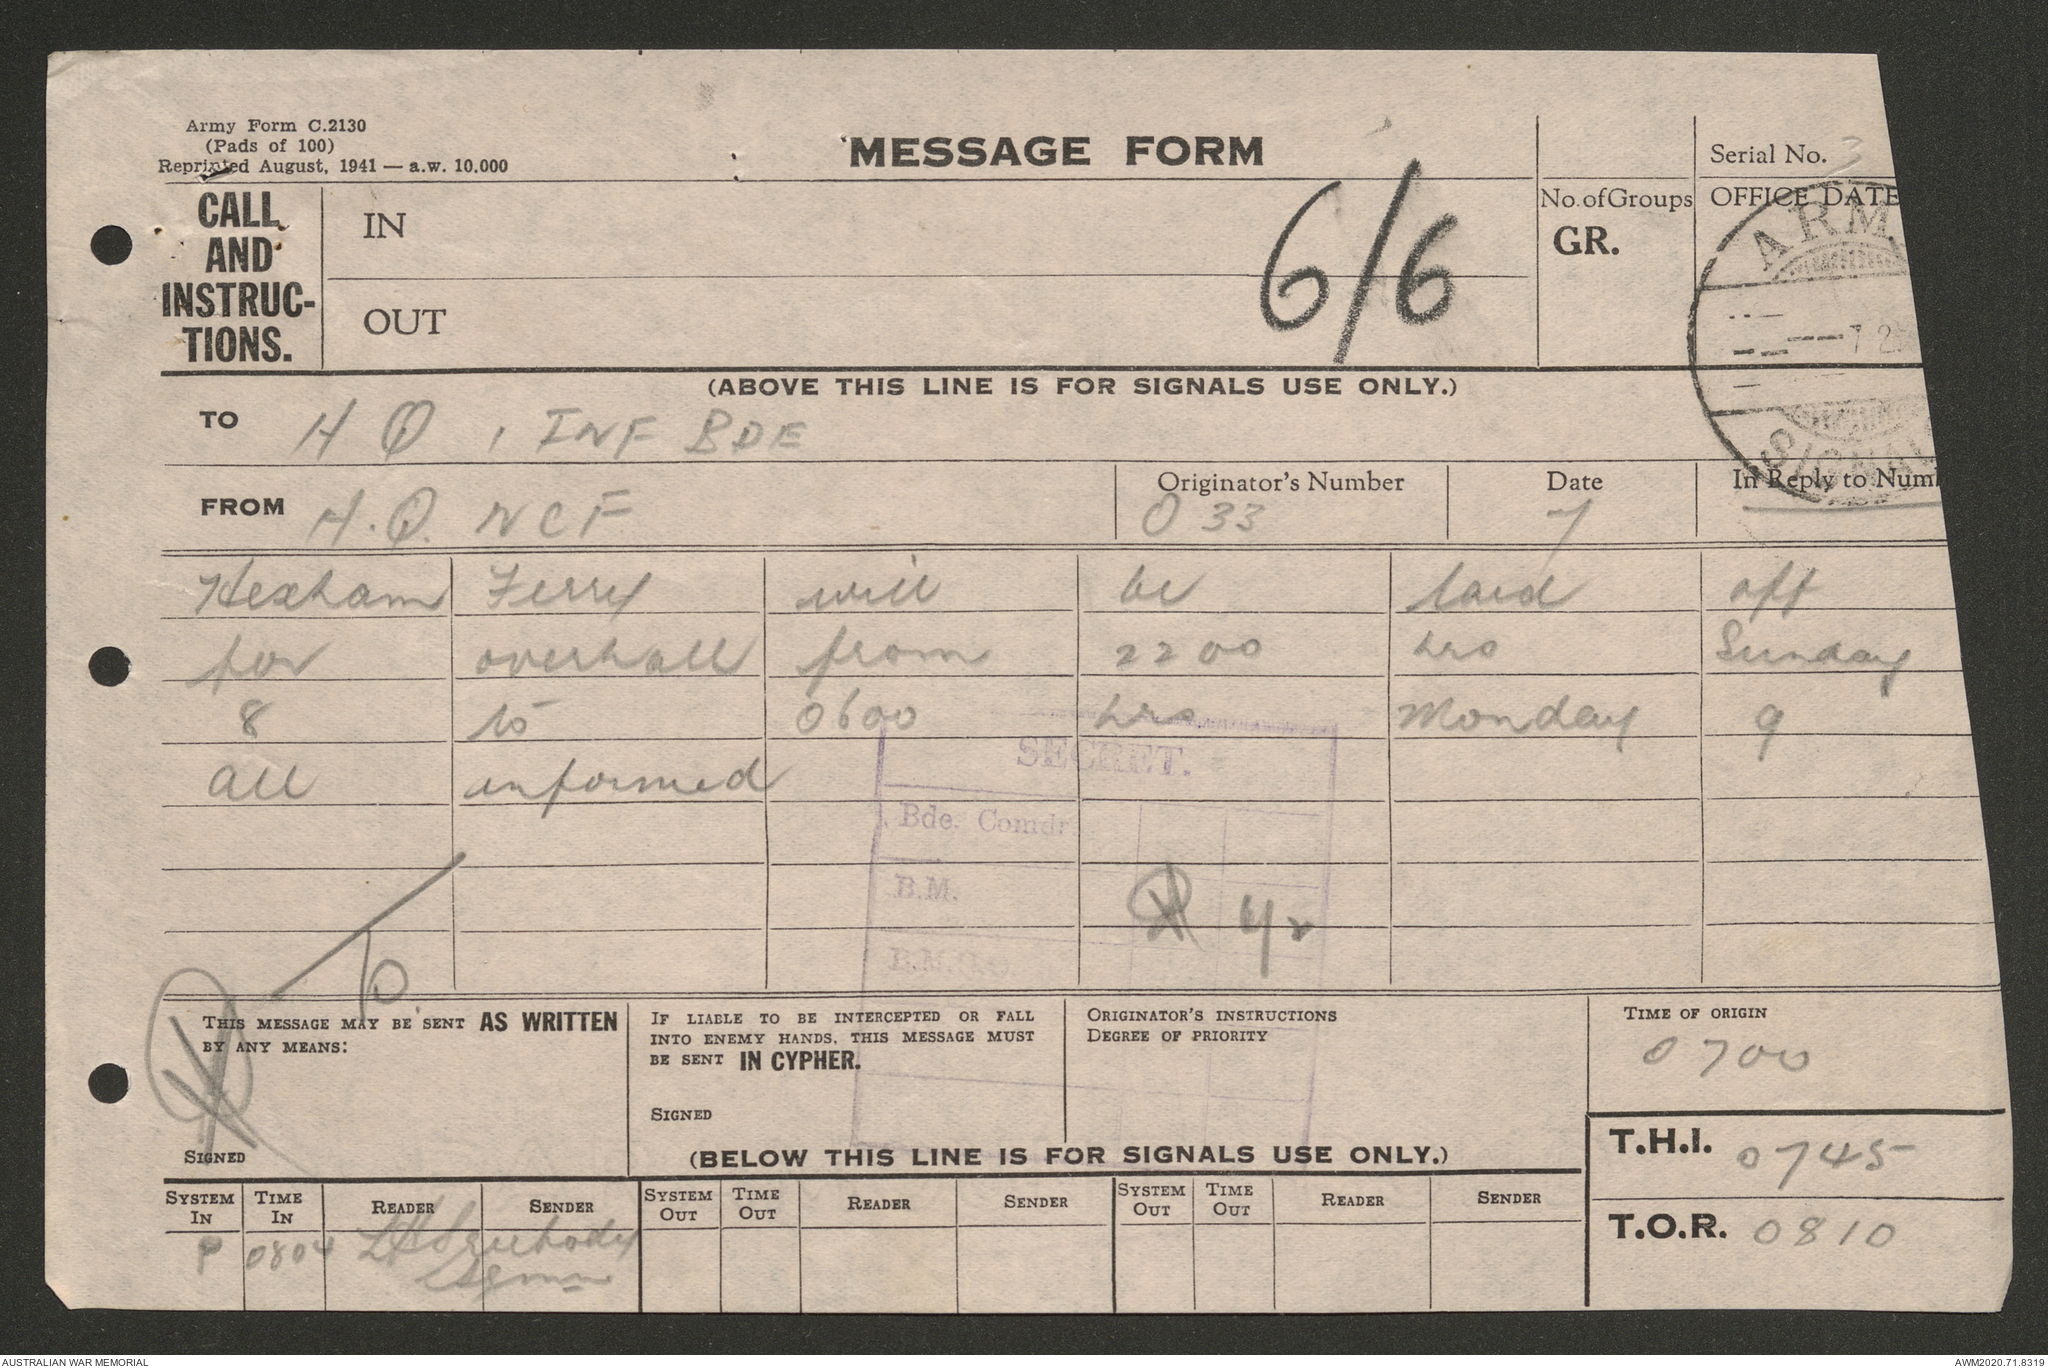 Army Form C.2130
(Pads of 100)
Reprinted August, 1941 — a.w. 10.000
MESSAGE FORM
Serial No. 3
CALL AND INSTRUC-TIONS.
IN
OUT
6/6
No. of Groups
GR.
OFFICE DATE
ARM
7 2
SIGNAL
(ABOVE THIS LINE IS FOR SIGNALS USE ONLY.)
TO H Q 1 INF BDE
FROM H.Q. NCF
Originator's Number
O 33
Date
7
In Reply to Num
Hexham Ferry will be laid off
for overhall from 2200 hrs Sunday
8 to 0600 hrs Monday 9
all informed
SECRET.
Bde. Comdr
B.M.
B.M.
THIS MESSAGE MAY BE SENT AS WRITTEN
BY ANY MEANS:
SIGNED
IF LIABLE TO BE INTERCEPTED OR FALL
INTO ENEMY HANDS, THIS MESSAGE MUST
BE SENT IN CYPHER.
SIGNED
ORIGINATOR'S INSTRUCTIONS
DEGREE OF PRIORITY
TIME OF ORIGIN
0700
(BELOW THIS LINE IS FOR SIGNALS USE ONLY.)
T.H.I. 0745
T.O.R. 0810
SYSTEM IN TIME IN READER SENDER SYSTEM OUT TIME OUT READER SENDER SYSTEM OUT TIME OUT READER SENDER
P 0804
AUSTRALIAN WAR MEMORIAL
AWM2020.71.8319